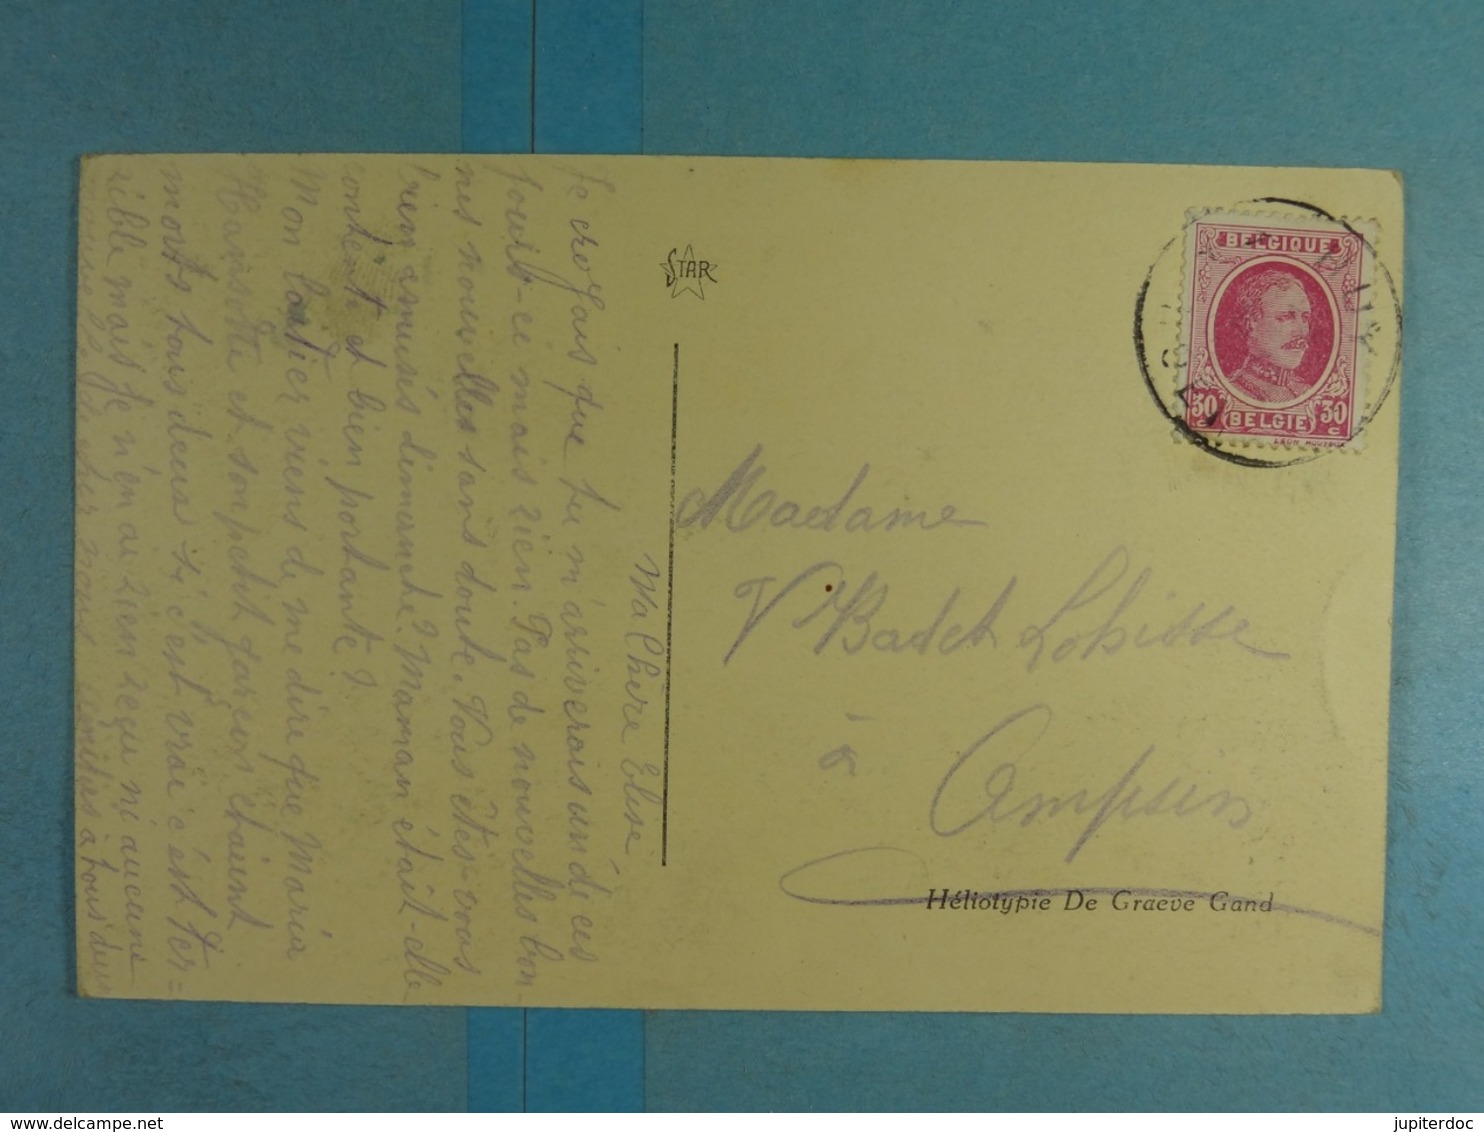 Ma Chère Elise
Je croyais que tu m'arriverais un de ces
jours-ce mais rien. Pas de nouvelles bon-
nes nouvelles sans doute. Vous êtes-vous
bien amusés dimanche? Maman était-elle
contente et bien portante?
Mon viens de me dire que Maria
et son petit garçon étaient
morts tous deux si c'est vrai c'est ter=
rible mais je n'en ai rien reçu ni aucune
à tous deux
STAR
BELGIQUE
30 30
c BELGIE c
Madame
V Badet Lobisse
à
Ampsin
Héliotypie De Graeve Gand
http://www.delcampe.net
jupiterdoc